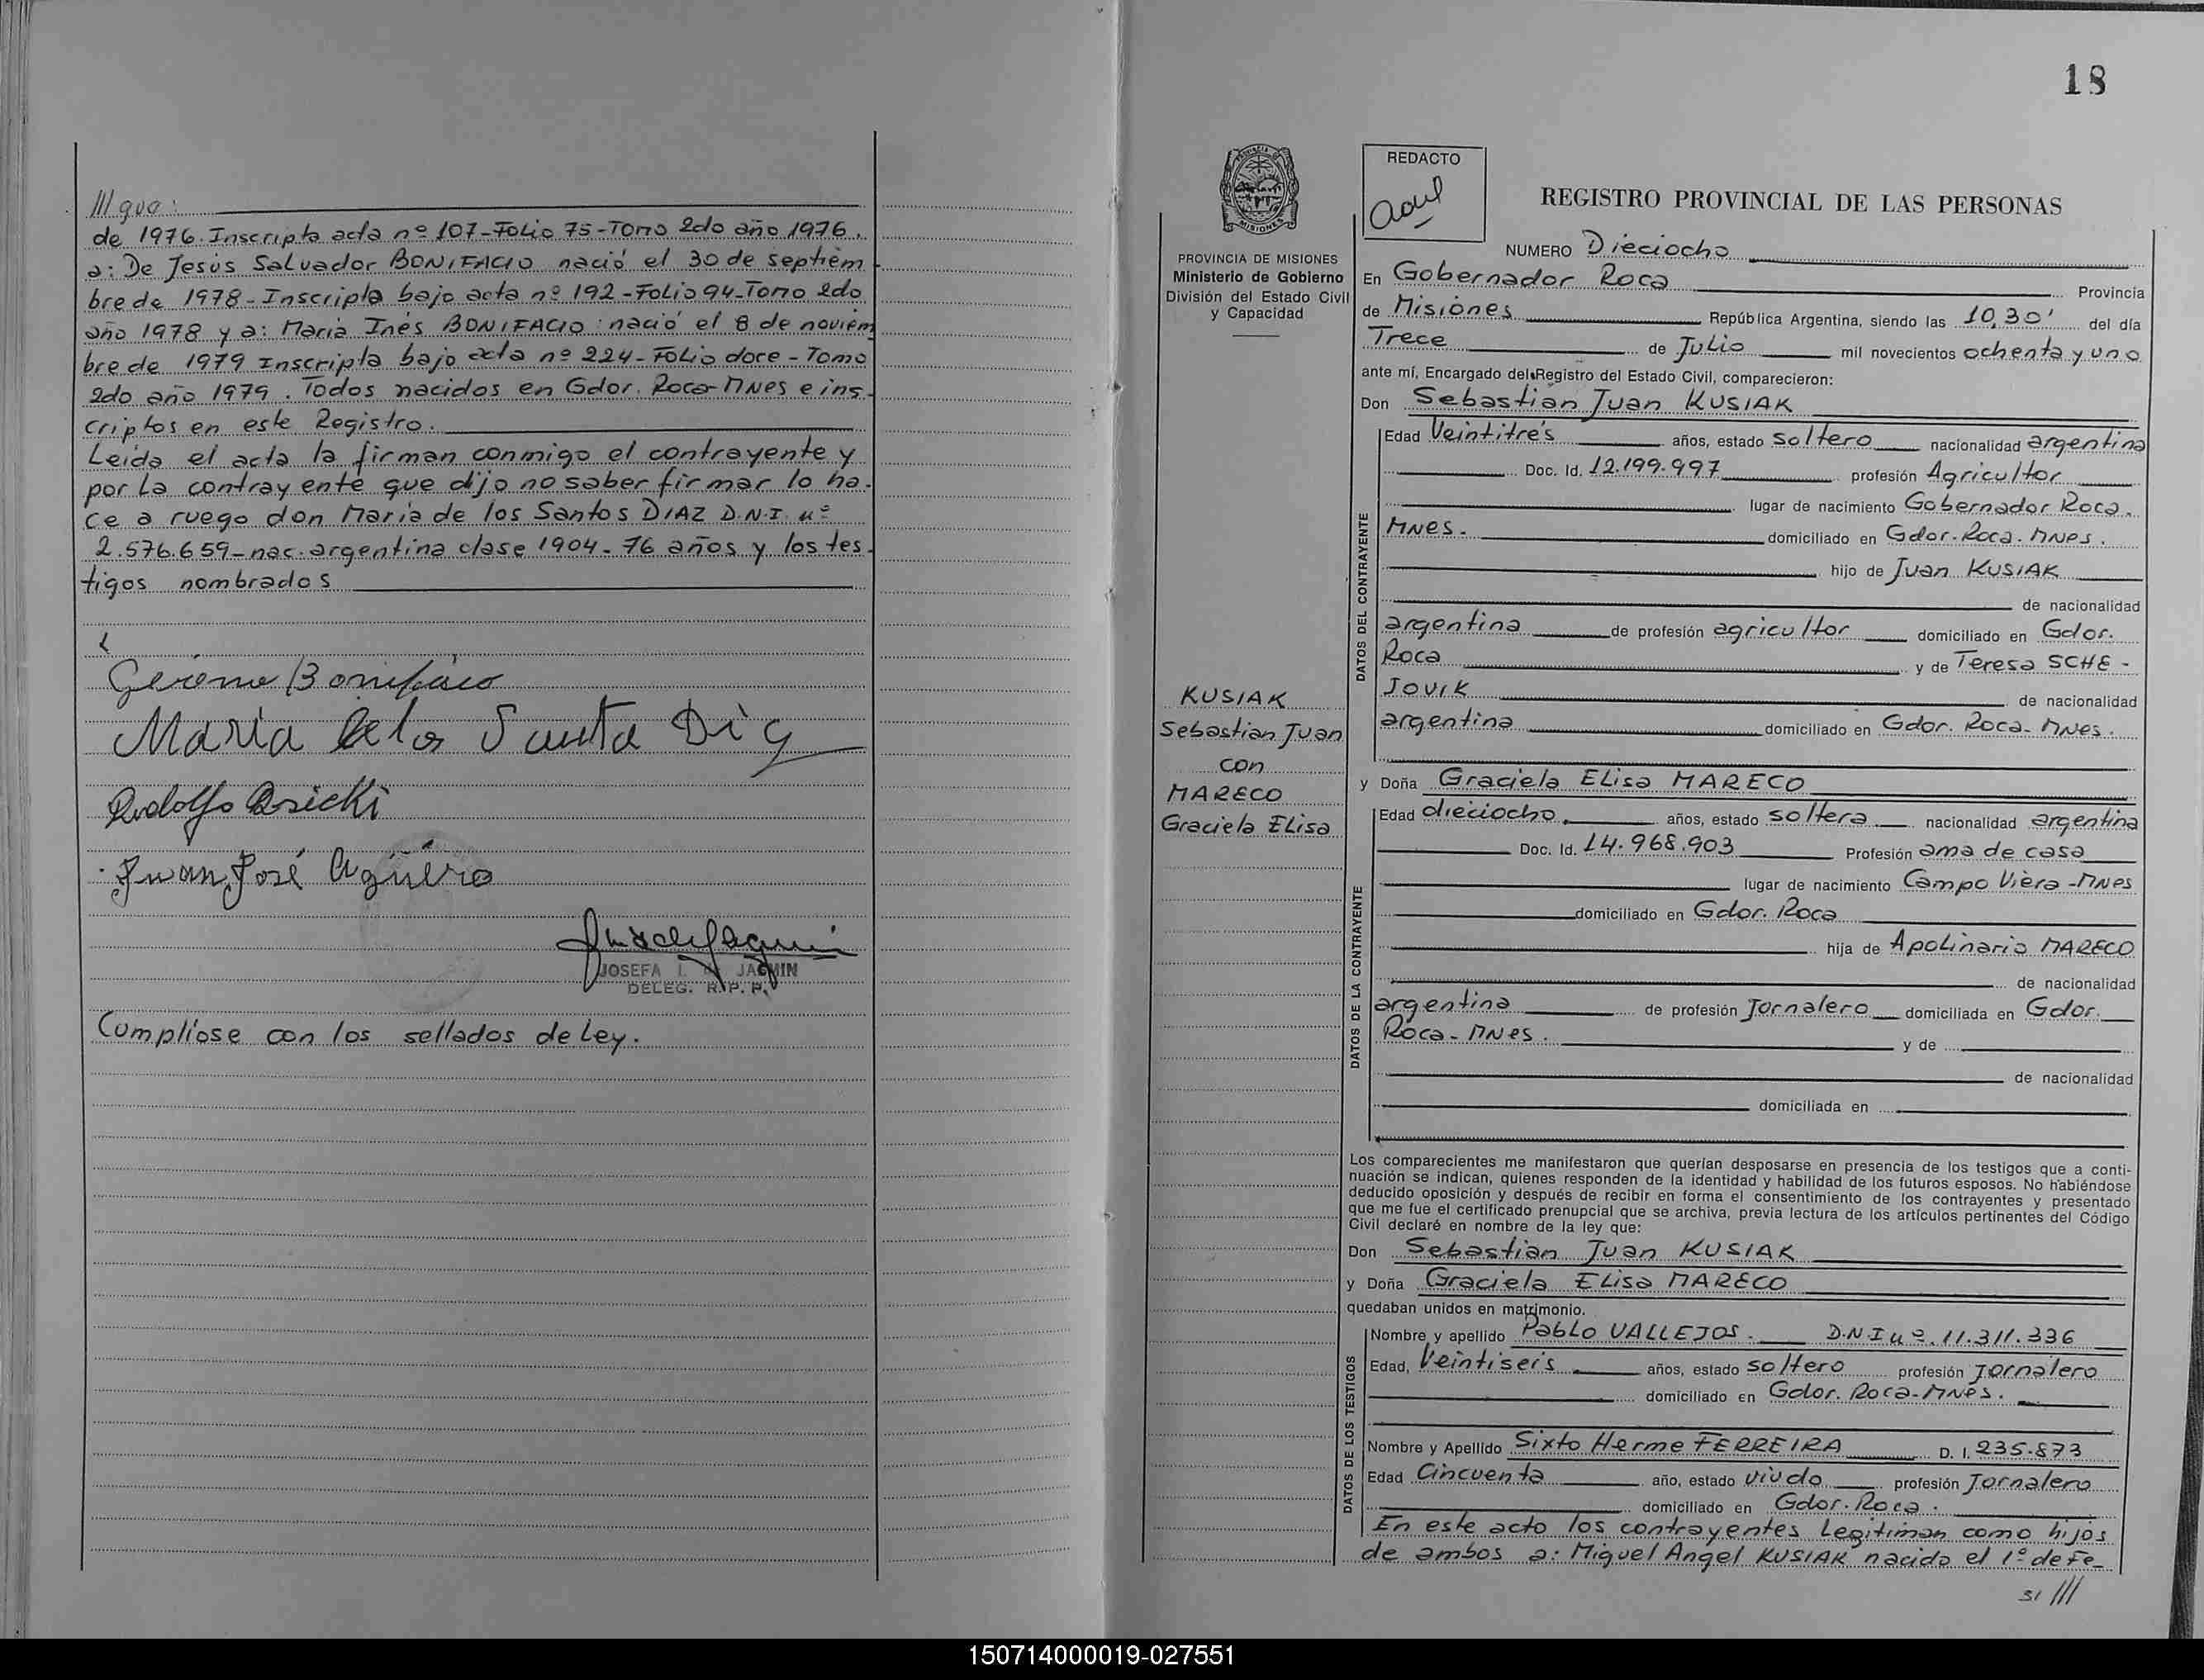 /// que:
de 1976. Inscripta acta nº 107-Folio 75-Tomo 2do año 1976.
a: De Jesús Salvador BONIFACIO nació el 30 de septiem
bre de 1978-Inscripta bajo acta nº 192-Folio 94-Tomo 2do
año 1978 y a: María Inés BONIFACIO: nació el 8 de noviem
bre de 1979 Inscripta bajo acta nº 224-Folio doce-Tomo
2do año 1979. Todos nacidos en Gdor. Roca-Mnes e ins-
criptos en este Registro.
Leída el acta la firman conmigo el contrayente y
por la contrayente que dijo no saber firmar lo ha-
ce a ruego don María de los Santos DIAZ D.N.I. nº
2.576.659-nac. argentina clase 1904-76 años y los tes-
tigos nombrados
Bonifacio
Maria de los
Rodolfo
Juan José Agüero
JOSEFA I. JACMIN
DELEG. R.P.P.
Cumplióse con los sellados de Ley.
18
REDACTO
REGISTRO PROVINCIAL DE LAS PERSONAS
PROVINCIA DE MISIONES
Ministerio de Gobierno
División del Estado Civil
y Capacidad
NUMERO Dieciocho
En Gobernador Roca Provincia
de Misiones República Argentina, siendo las 10,30' del día
Trece de Julio mil novecientos ochenta y uno
ante mí, Encargado del Registro del Estado Civil, comparecieron:
Don Sebastián Juan KUSIAK
DATOS DEL CONTRAYENTE
Edad Veintitrés años, estado soltero nacionalidad argentina
Doc. Id. 12.199.997 profesión Agricultor
lugar de nacimiento Gobernador Roca-
Mnes. domiciliado en Gdor. Roca. Mnes.
hijo de Juan KUSIAK
de nacionalidad
argentina de profesión agricultor domiciliado en Gdor.
Roca y de Teresa SCHE-
JOVIK de nacionalidad
argentina domiciliado en Gdor. Roca-Mnes.
KUSIAK
Sebastián Juan
con
MARECO
Graciela Elisa
y Doña Graciela Elisa MARECO
DATOS DE LA CONTRAYENTE
Edad dieciocho. años, estado soltera nacionalidad argentina
Doc. Id. 14.968.903 Profesión ama de casa
lugar de nacimiento Campo Viera-Mnes
domiciliado en Gdor. Roca
hija de Apolinario MARECO
de nacionalidad
argentina de profesión Jornalero domiciliada en Gdor.
Roca-Mnes. y de
de nacionalidad
domiciliada en
Los comparecientes me manifestaron que querían desposarse en presencia de los testigos que a conti-
nuación se indican, quienes responden de la identidad y habilidad de los futuros esposos. No habiéndose
deducido oposición y después de recibir en forma el consentimiento de los contrayentes y presentado
que me fue el certificado prenupcial que se archiva, previa lectura de los artículos pertinentes del Código
Civil declaré en nombre de la ley que:
Don Sebastián Juan KUSIAK
y Doña Graciela Elisa MARECO
quedaban unidos en matrimonio.
DATOS DE LOS TESTIGOS
Nombre y apellido Pablo VALLEJOS. D.N.I nº. 11.311.336
Edad, Veintiseis años, estado soltero profesión Jornalero
domiciliado en Gdor. Roca-Mnes.
Nombre y Apellido Sixto Herme FERREIRA D. I. 235.873
Edad Cincuenta año, estado viudo profesión Jornalero
domiciliado en Gdor. Roca.
En este acto los contrayentes Legitiman como hijos
de ambos a: Miguel Angel KUSIAK nacido el 1º de Fe-
///
150714000019-027551